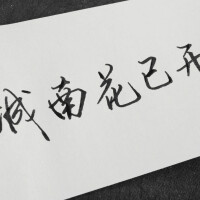 城南花已开